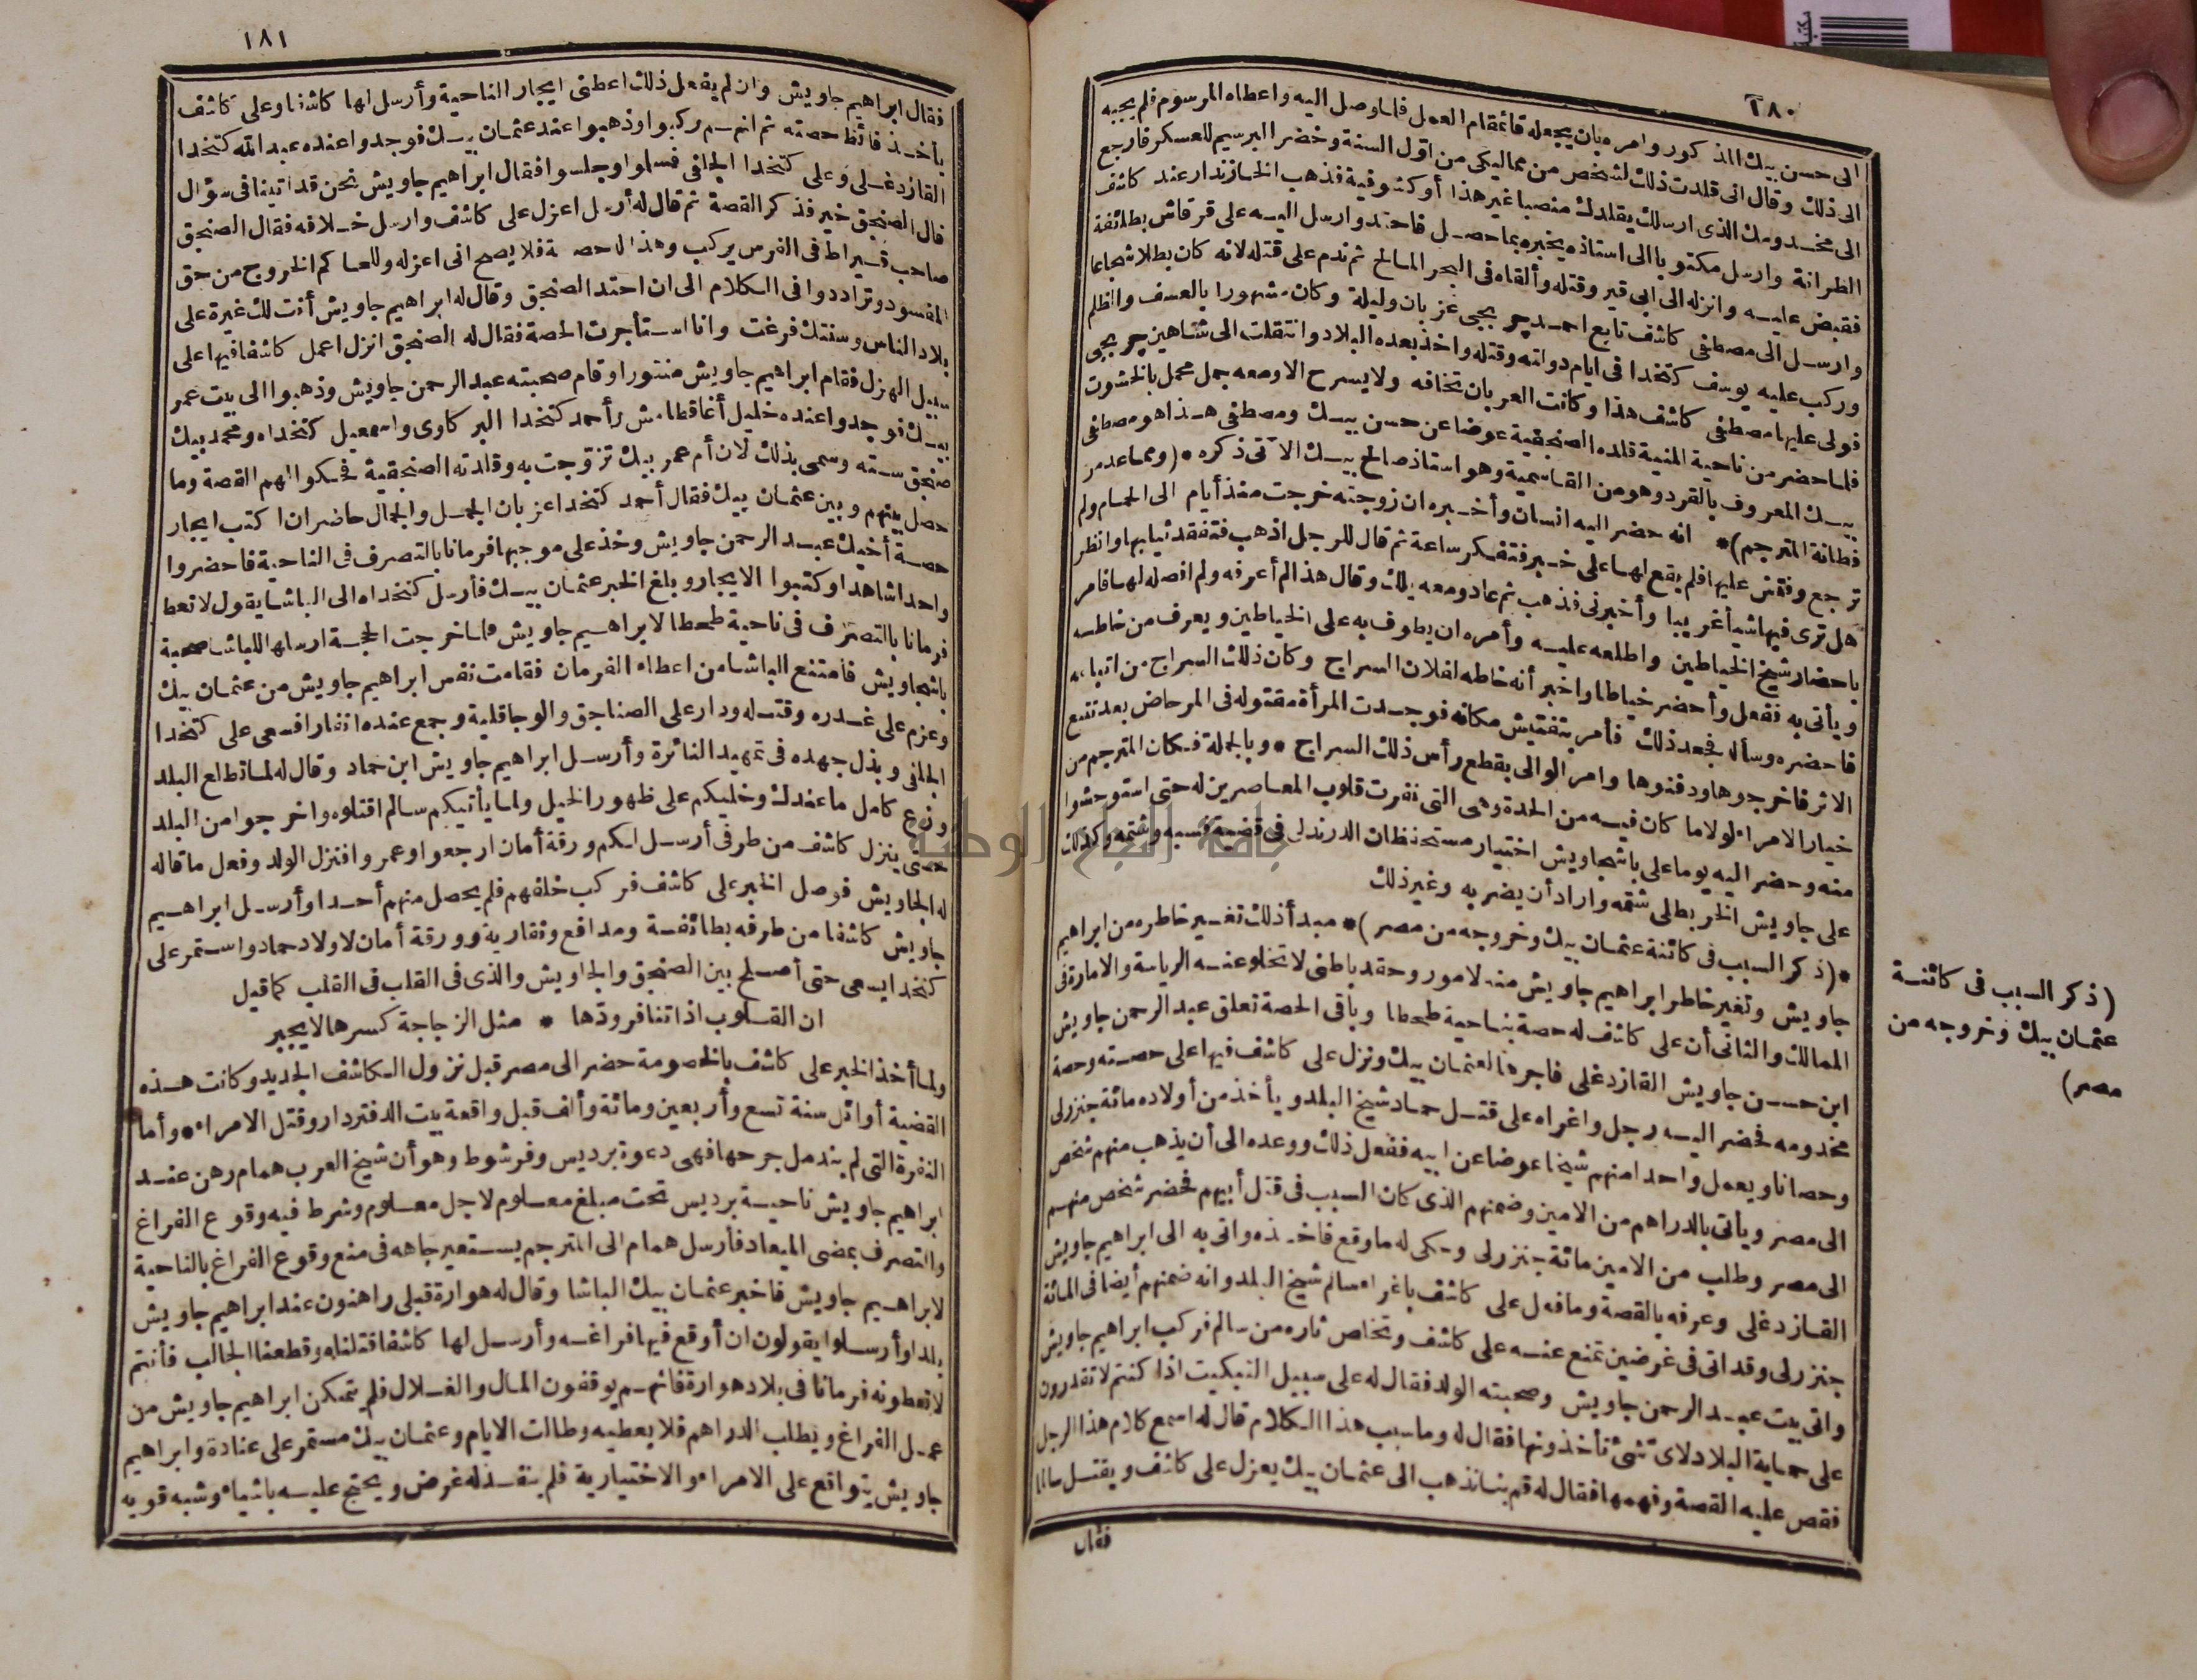 ١٨٠
الى حسن بيك المذكور وامره بان يجعله قائمقام العمل فلما وصل اليه واعطاه المرسوم فلم يجبه
الى ذلك وقال انى قلدت ذلك لشخص من مماليكى من اول السنة وخضر البرسيم للعسكر فارجع
الى مخدومك الذى ارسلك يقلدك منصبا غير هذا أو كشوفية فذهب الخازندار عند كاشف
الطرانة وارسل مكتوبا الى استاذه يخبره بما حصل فاحتد وارسل اليه على قرقاش بطائفة
فقبض عليه وانزله الى ابى قير وقتله وألقاه فى البحر المالح ثم ندم على قتله لانه كان بطلا شجاعا
وارسل الى مصطفى كاشف تابع احمد جربجى عزبان وليلة وكان مشهورا بالعسف والظلم
وركب عليه يوسف كتخدا فى ايام دولته وقتله واخذ بعده البلاد وانتقلت الى شاهين جربجى
فولى عليها مصطفى كاشف هذا وكانت العربان تخافه ولا يسرح الا ومعه جمل محمل بالخشوت
فلما حضر من ناحية المنية قلده الصنجقية عوضا عن حسن بيك ومصطفى هذا هو مصطفى
بيك المعروف بالقرد وهو من القاسمية وهو استاذ صالح بيك الآتى ذكره * (ومما عد من
فطانة المترجم) * انه حضر اليه انسان وأخبره ان زوجته خرجت منذ أيام الى الحمام ولم
ترجع وفتش عليها فلم يقع لها على خبر فتفكر ساعة ثم قال للرجل اذهب فتفقد ثيابها وانظر
هل ترى فيها شيأ غريبا وأخبرنى فذهب ثم عاد ومعه يلك وقال هذا لم أعرفه ولم افصله لها فامر
باحضار شيخ الخياطين واطلعه عليه وأمره ان يطوف به على الخياطين ويعرف من خاطه
ويأتى به ففعل وأحضر خياطا واخبر أنه خاطه لفلان السراج وكان ذلك السراج من اتباعه
فاحضره وسأله فجحد ذلك فأمر بتفتيش مكانه فوجدت المرأة مقتولة فى المرحاض بعد تتبع
الاثر فاخرجوها ودفنوها وامر الوالى بقطع رأس ذلك السراج * وبالجملة فكان المترجم من
خيار الامراء لولا ما كان فيه من الحدة وهى التى نفرت قلوب المعاصرين له حتى استوحشوا
منه وحضر اليه يوما على باشجاويش اختيار مستحفظان الدرندلى فى قضية فسبه وشتمه وكذلك
على جاويش الخربطلى شتمه واراد أن يضربه وغير ذلك
* (ذكر السبب فى كائنة عثمان بيك وخروجه من مصر) * مبدأ ذلك تغير خاطره من ابراهيم
جاويش وتغير خاطر ابراهيم جاويش منه لامور وحقد باطنى لا تخلو عنه الرياسة والامارة فى
الممالك والثانى أن على كاشف له حصة بناحية طحطا وباقى الحصة تعلق عبد الرحمن جاويش
ابن حسن جاويش القازدغلى فاجرها لعثمان بيك ونزل على كاشف فيها على حصته وحصة
مخدومه فحضر اليه رجل واغراه على قتل حماد شيخ البلد ويأخذ من أولاده مائة جنزرلى
وحصانا ويعمل واحدا منهم شيخا عوضا عن ابيه ففعل ذلك ووعده الى أن يذهب منهم شخص
الى مصر ويأتى بالدراهم من الامين وضمنهم الذى كان السبب فى قتل أبيهم فحضر شخص منهم
الى مصر وطلب من الامين مائة جنزرلى وحكى له ما وقع فاخذه واتى به الى ابراهيم جاويش
القازدغلى وعرفه بالقصة وما فعل على كاشف باغراء سالم شيخ البلد وانه ضمنهم أيضا فى المائة
جنزرلى وقد اتى فى غرضين تمنع عنه على كاشف وتخلص ثاره من سالم فركب ابراهيم جاويش
واتى بيت عبد الرحمن جاويش وصحبته الولد فقال له على سبيل التبكيت اذا كنتم لا تقدرون
على حماية البلاد لاى شئ تأخذونها فقال له وما سبب هذا الكلام قال له اسمع كلام هذا الرجل
فقص عليه القصة وفهمها فقال له قم بنا نذهب الى عثمان بيك يعزل على كاشف ويقتل سالما
فقال
(ذكر السبب فى كائنة
عثمان بيك وخروجه من
مصر)
١٨١
فقال ابراهيم جاويش وان لم يفعل ذلك اعطنى ايجار الناحية وأرسل لها كاشفا وعلى كاشف
يأخذ فائظ حصته ثم انهم ركبوا وذهبوا عند عثمان بيك فوجدوا عنده عبد الله كتخدا
القازدغلى وعلى كتخدا الجلفى فسلموا وجلسوا فقال ابراهيم جاويش نحن قد اتينا فى سؤال
قال الصنجق خير فذكر القصة ثم قال له أرسل اعزل على كاشف وارسل خلافه فقال الصنجق
صاحب قيراط فى الفرس يركب وهذا له حصة فلا يصح انى اعزله وللحاكم الخروج من حق
المفسود وترادوا فى الكلام الى ان احتد الصنجق وقال له ابراهيم جاويش أنت لك غيرة على
بلاد الناس وسنتك فرغت وانا استأجرت الحصة فقال له الصنجق انزل اعمل كاشفا فيها على
سبيل الهزل فقام ابراهيم جاويش منتورا وقام صحبته عبد الرحمن جاويش وذهبوا الى بيت عمر
بيك فوجدوا عنده خليل أغا قطامش وأحمد كتخدا البركاوى واسمعيل كتخداه ومحمد بيك
صنجق سته وسمى بذلك لان أم عمر بيك تزوجت به وقلدته الصنجقية فحكوا لهم القصة وما
حصل بينهم وبين عثمان بيك فقال أحمد كتخدا عزبان الجمل والجمال حاضران اكتب ايجار
حصة أخيك عبد الرحمن جاويش وخذ على موجبها فرمانا بالتصرف فى الناحية فاحضروا
واحدا شاهدا وكتبوا الايجار وبلغ الخبر عثمان بيك فأرسل كتخداه الى الباشا يقول لا تعط
فرمانا بالتصرف فى ناحية طحطا لابراهيم جاويش فلما خرجت الحجة ارسلها للباشا صحبة
باشجاويش فامتنع الباشا من اعطاء الفرمان فقامت نفس ابراهيم جاويش من عثمان بيك
وعزم على غدره وقتله ودار على الصناجق والوجاقلية وجمع عنده انفارا فسعى على كتخدا
الجلفى وبذل جهده فى تمهيد النائرة وأرسل ابراهيم جاويش ابن حماد وقال له لما تطلع البلد
وزع كامل ما عندك وخليكم على ظهور الخيل ولما يأتيكم سالم اقتلوه واخرجوا من البلد
حتى ينزل كاشف من طرفى أرسل لكم ورقة أمان ارجعوا وعمروا فنزل الولد وفعل ما قاله
له الجاويش فوصل الخبر على كاشف فركب خلفهم فلم يحصل منهم أحدا وأرسل ابراهيم
جاويش كاشفا من طرفه بطائفة ومدافع ونقارية وورقة أمان لاولاد حماد واستمر على
كتخدا يسعى حتى أصلح بين الصنجق والجاويش والذى فى القلب فى القلب كما قيل
ان القلوب اذا تنافر ودها * مثل الزجاجة كسرها لا يجبر
ولما أخذ الخبر على كاشف بالخصومة حضر الى مصر قبل نزول الكاشف الجديد وكانت هذه
القضية أوائل سنة تسع وأربعين ومائة وألف قبل واقعة بيت الدفتردار وقتل الامراء * وأما
النفرة التى لم يندمل جرحها فهى دعوة برديس وفرشوط وهو أن شيخ العرب همام رهن عند
ابراهيم جاويش ناحية برديس تحت مبلغ معلوم لاجل معلوم وشرط فيه وقوع الفراغ
والتصرف بمضى الميعاد فأرسل همام الى المترجم يستعير جاهه فى منع وقوع الفراغ بالناحية
لابراهيم جاويش فاخبر عثمان بيك الباشا وقال له هوارة قبلى راهنون عند ابراهيم جاويش
بلدا وأرسلوا يقولون ان أوقع فيها فراغه وأرسل لها كاشفا قتلناه وقطعنا الجالب فأنتم
لا تعطونه فرمانا فى بلاد هوارة فانهم يوقفون المال والغلال فلم يتمكن ابراهيم جاويش من
عمل الفراغ ويطلب الدراهم فلا يعطيه وطالت الايام وعثمان بيك مستمر على عناده وابراهيم
جاويش يتواقع على الامراء والاختيارية فلم ينفذ له غرض ويحتج عليه باشياء وشبه قوية